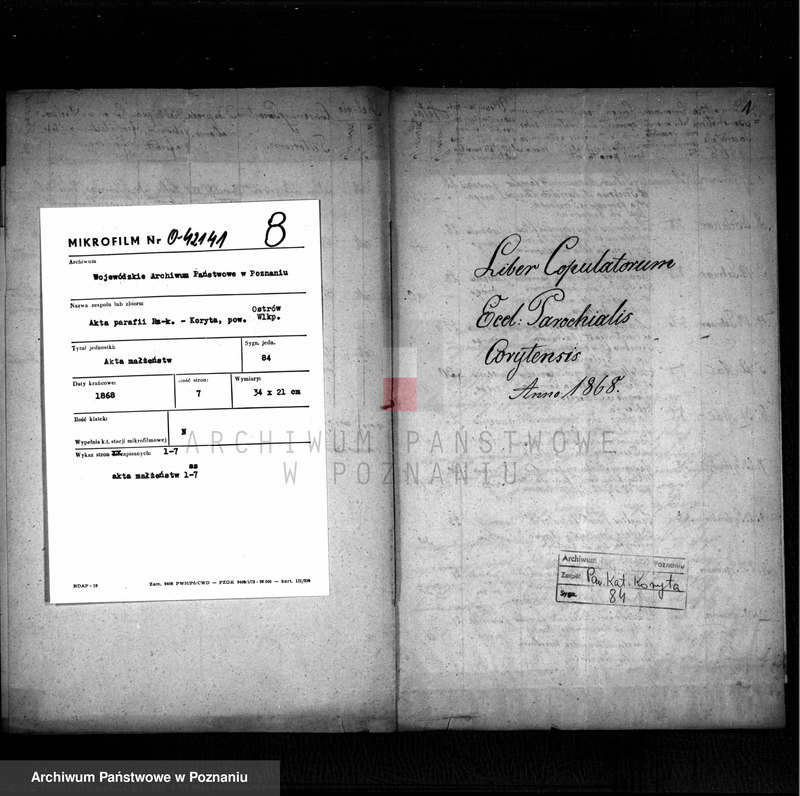 MIKROFILM Nr 0-42141 8
Archiwum
Wojewódzkie Archiwum Państwowe w Poznaniu
Nazwa zespołu lub zbioru
Akta parafii Rz-k. - Koryta, pow. Ostrów Wlkp.
Tytuł jednostki:
Akta małżeństw
Sygn. jedn.
84
Daty krańcowe:
1868
Ilość stron:
7
Wymiary:
34 x 21 cm
Ilość klatek:
N
Wypełnia k.t. stacji mikrofilmowej
Wykaz stron zapisanych: 1-7
ss
akta małżeństw 1-7
NDAP - 10
1
Liber Copulatorum
Eccl: Parochialis
Corytensis
Anno 1868.
Archiwum Poznaniu
Zespół Par. Kat. Koryta
Sygn. 84
ARCHIWUM PAŃSTWOWE
W POZNANIU
Archiwum Państwowe w Poznaniu